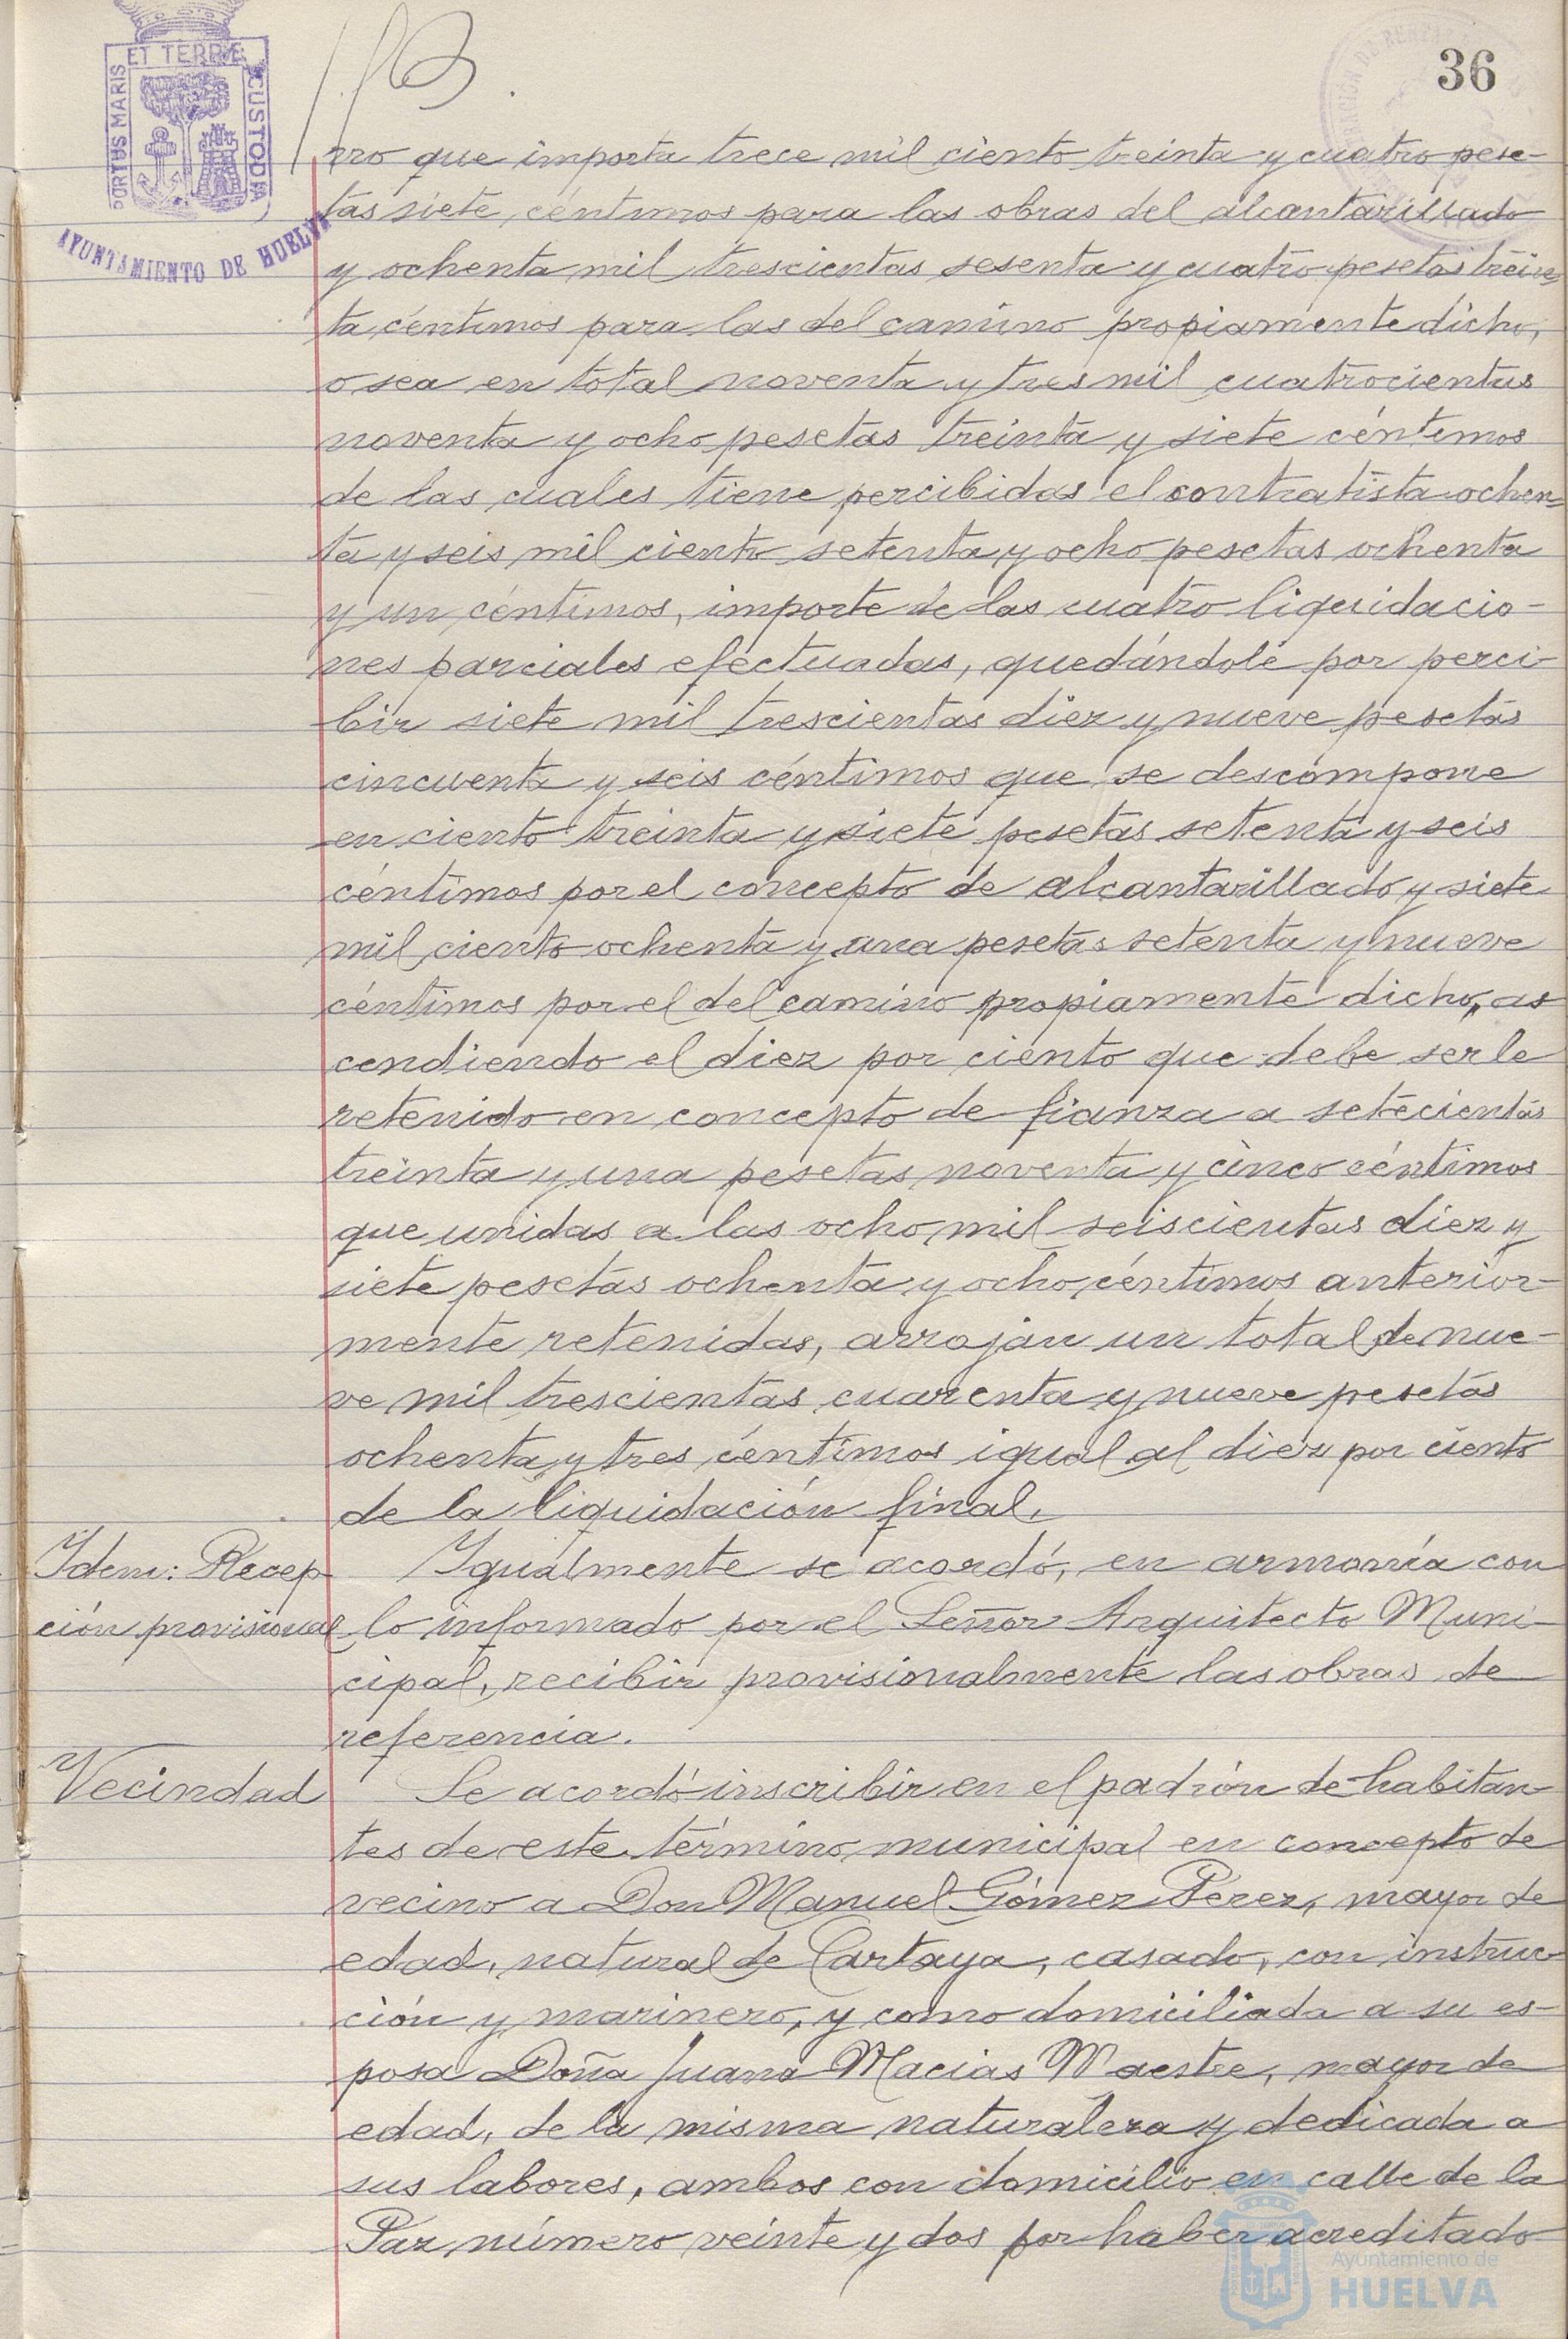 36
PORTUS MARIS ET TERRÆ CUSTODIA
AYUNTAMIENTO DE HUELVA
rro que importa trece mil ciento treinta y cuatro pese-
tas siete céntimos para las obras del alcantarillado
y ochenta mil trescientas sesenta y cuatro pesetas trein-
ta céntimos para las del camino propiamente dicho,
o sea en total noventa y tres mil cuatrocientas
noventa y ocho pesetas treinta y siete céntimos
de las cuales tiene percibidas el contratista ochen-
ta y seis mil ciento setenta y ocho pesetas ochenta
y un céntimos, importe de las cuatro liquidacio-
nes parciales efectuadas, quedándole por perci-
bir siete mil trescientas diez y nueve pesetas
cincuenta y seis céntimos que se descompone
en ciento treinta y siete pesetas setenta y seis
céntimos por el concepto de alcantarillado y siete
mil ciento ochenta y una pesetas setenta y nueve
céntimos por el del camino propiamente dicho, as
cendiendo el diez por ciento que debe serle
retenido en concepto de fianza a setecientas
treinta y una pesetas noventa y cinco céntimos
que unidas a las ocho mil seiscientas diez y
siete pesetas ochenta y ocho céntimos anterior-
mente retenidas, arrojan un total de nue-
ve mil trescientas cuarenta y nueve pesetas
ochenta y tres céntimos igual al diez por ciento
de la liquidación final.
Idem: Recep
ción provisional
Igualmente se acordó, en armonía con
lo informado por el Señor Arquitecto Muni-
cipal, recibir provisionalmente las obras de
referencia.
Vecindad
Se acordó inscribir en el padrón de habitan-
tes de este término municipal en concepto de
vecino a Don Manuel Gómez Perez, mayor de
edad, natural de Cartaya, casado, con instruc-
ción y marinero, y como domiciliada a su es-
posa Doña Juana Macias Maestre, mayor de
edad, de la misma naturaleza y dedicada a
sus labores, ambos con domicilio en calle de la
Paz número veinte y dos por haber acreditado
Ayuntamiento de
HUELVA